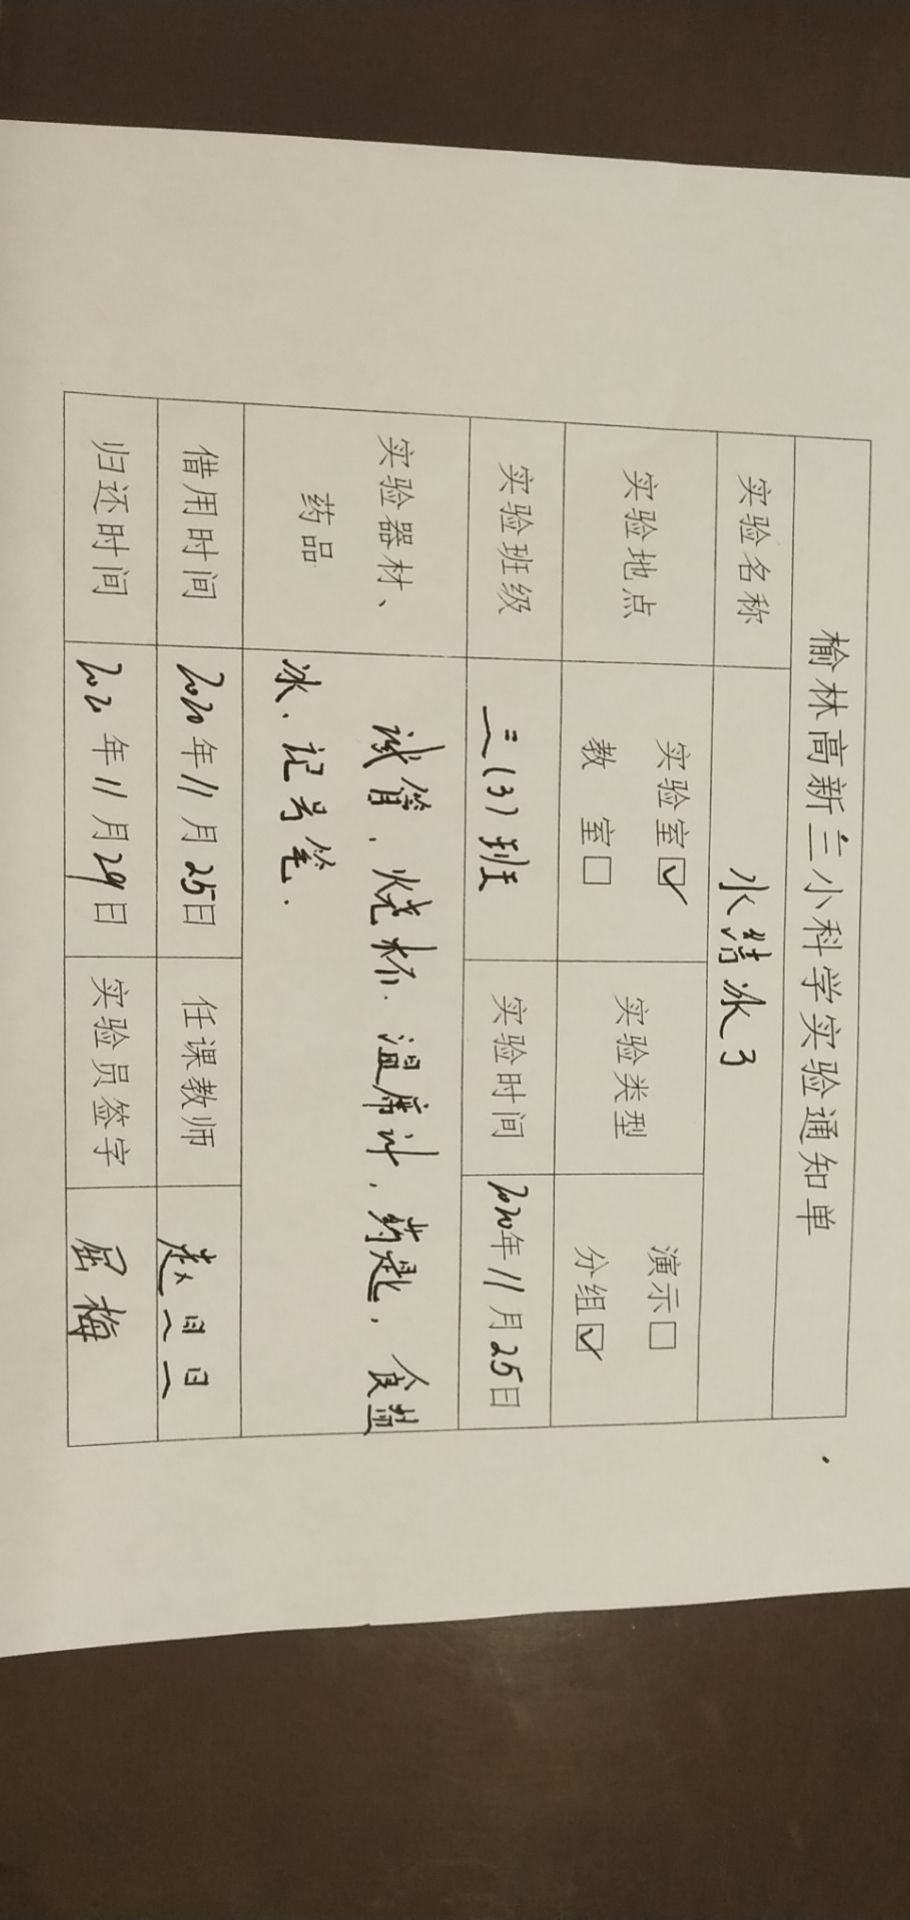 榆林高新三小科学实验通知单
实验名称 水结冰了
实验地点 实验室☑ 教 室□ 实验类型 演示□ 分组☑
实验班级 三(3)班 实验时间 2020年11月25日
实验器材、药品 试管、烧杯、温度计、药匙、食盐
冰、记号笔.
借用时间 2020年11月25日 任课教师
归还时间 2020年11月29日 实验员签字 屈梅